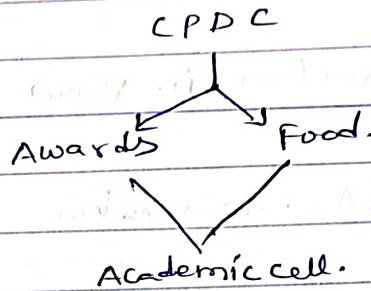 CPDC
Awards
Food.
Academic cell.